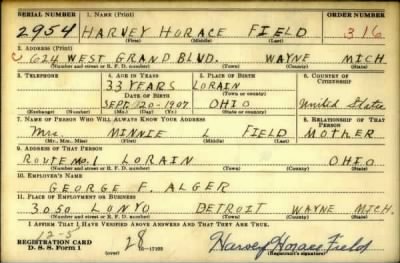 SERIAL NUMBER 1. NAME (Print) ORDER NUMBER
2954 HARVEY HORACE FIELD 316
(First) (Middle) (Last)
2. ADDRESS (Print)
624 WEST GRAND BLVD. WAYNE MICH.
(Number and street or R. F. D. number) (Town) (County) (State)
3. TELEPHONE 4. AGE IN YEARS 5. PLACE OF BIRTH 6. COUNTRY OF CITIZENSHIP
33 YEARS LORAIN
DATE OF BIRTH (Town or county)
SEPT. 20-1907 OHIO United States
(Exchange) (Number) (Mo.) (Day) (Yr.) (State or country)
7. NAME OF PERSON WHO WILL ALWAYS KNOW YOUR ADDRESS 8. RELATIONSHIP OF THAT PERSON
Mrs. MINNIE L FIELD MOTHER
(Mr., Mrs., Miss) (First) (Middle) (Last)
9. ADDRESS OF THAT PERSON
ROUTE NO. 1 LORAIN OHIO
(Number and street or R. F. D. number) (Town) (County) (State)
10. EMPLOYER'S NAME
GEORGE F. ALGER
11. PLACE OF EMPLOYMENT OR BUSINESS
3050 LONYO DETROIT WAYNE MICH.
(Number and street or R. F. D. number) (Town) (County) (State)
I AFFIRM THAT I HAVE VERIFIED ABOVE ANSWERS AND THAT THEY ARE TRUE.
12-5
REGISTRATION CARD 28 Harvey Horace Field
D. S. S. Form 1 (over) (Registrant's signature)